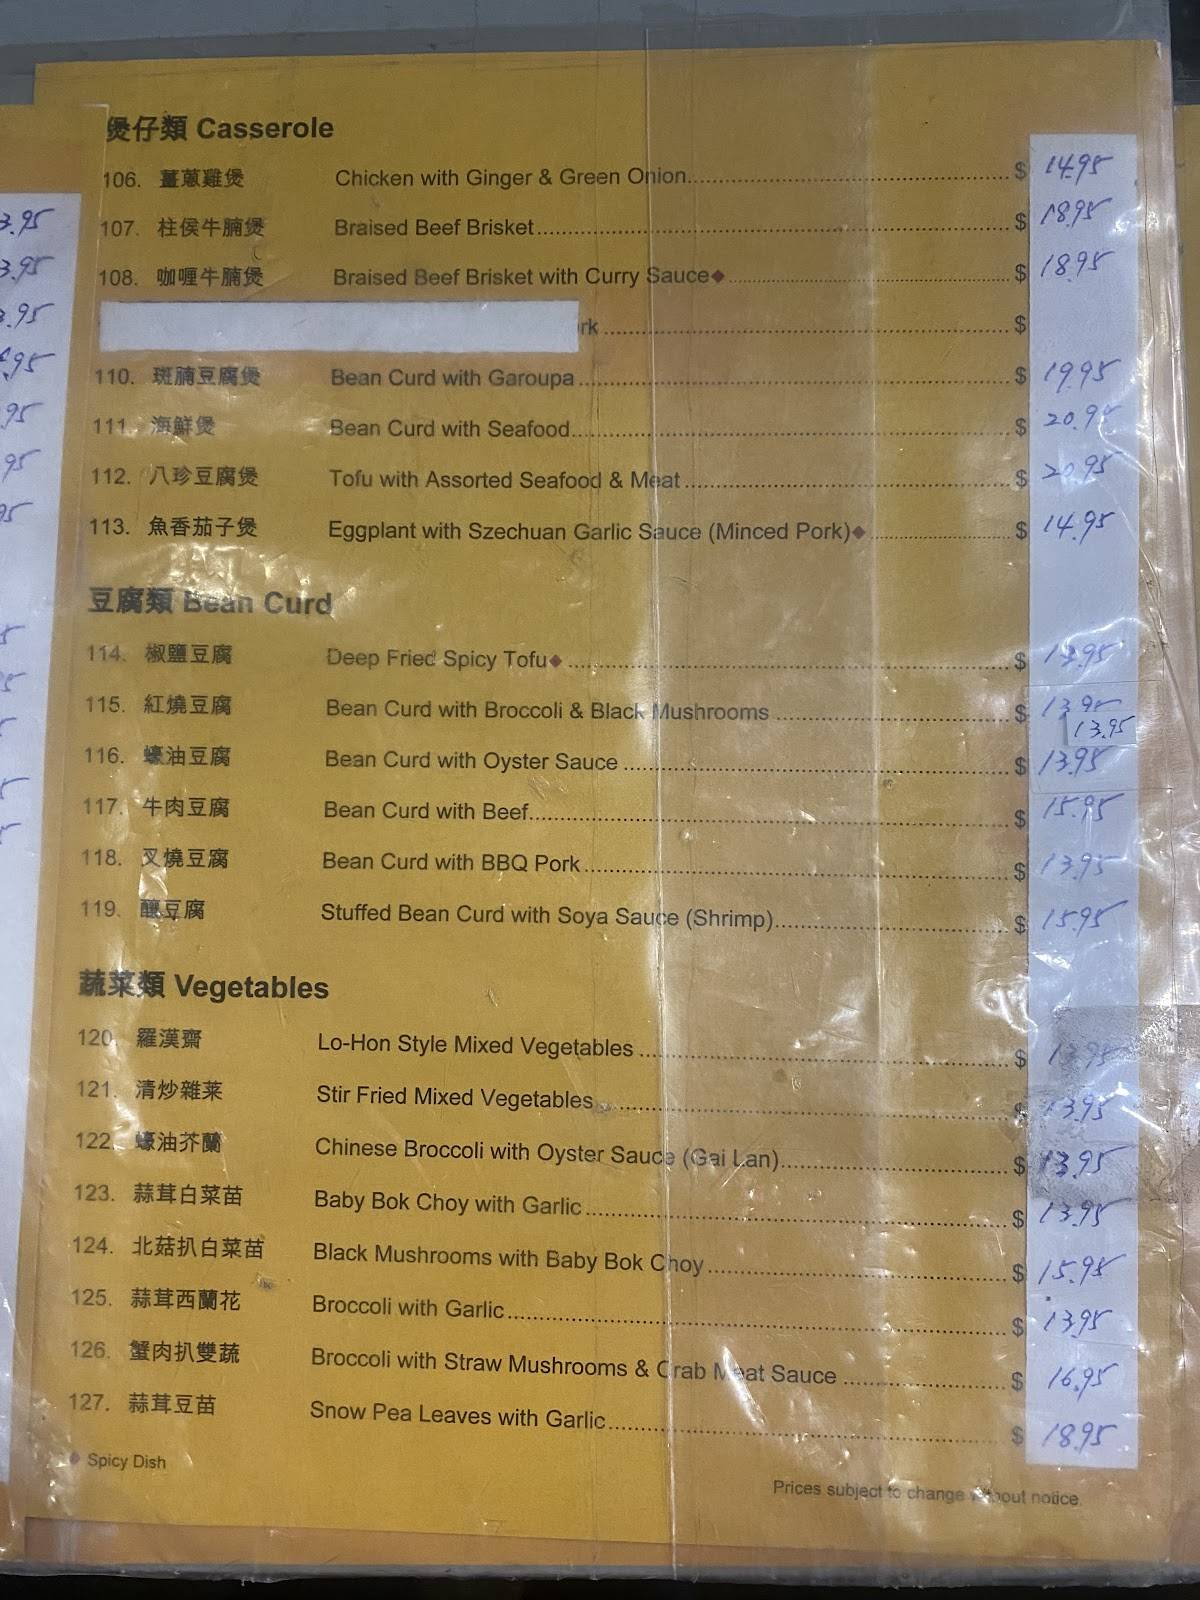 煲仔類 Casserole
106. 薑蔥雞煲 Chicken with Ginger & Green Onion $ 14.95
107. 柱侯牛腩煲 Braised Beef Brisket $ 18.95
108. 咖喱牛腩煲 Braised Beef Brisket with Curry Sauce◆ $ 18.95
rk $
110. 斑腩豆腐煲 Bean Curd with Garoupa $ 19.95
111. 海鮮煲 Bean Curd with Seafood $ 20.95
112. 八珍豆腐煲 Tofu with Assorted Seafood & Meat $ 20.95
113. 魚香茄子煲 Eggplant with Szechuan Garlic Sauce (Minced Pork)◆ $ 14.95
豆腐類 Bean Curd
114. 椒鹽豆腐 Deep Fried Spicy Tofu◆ $ 13.95
115. 紅燒豆腐 Bean Curd with Broccoli & Black Mushrooms $ 13.95
13.95
116. 蠔油豆腐 Bean Curd with Oyster Sauce $ 13.95
117. 牛肉豆腐 Bean Curd with Beef $ 15.95
118. 叉燒豆腐 Bean Curd with BBQ Pork $ 13.95
119. 釀豆腐 Stuffed Bean Curd with Soya Sauce (Shrimp) $ 15.95
蔬菜類 Vegetables
120. 羅漢齋 Lo-Hon Style Mixed Vegetables $ 13.95
121. 清炒雜菜 Stir Fried Mixed Vegetables $ 13.95
122. 蠔油芥蘭 Chinese Broccoli with Oyster Sauce (Gai Lan) $ 13.95
123. 蒜茸白菜苗 Baby Bok Choy with Garlic $ 13.95
124. 北菇扒白菜苗 Black Mushrooms with Baby Bok Choy $ 15.95
125. 蒜茸西蘭花 Broccoli with Garlic $ 13.95
126. 蟹肉扒雙蔬 Broccoli with Straw Mushrooms & Crab Meat Sauce $ 16.95
127. 蒜茸豆苗 Snow Pea Leaves with Garlic $ 18.95
◆ Spicy Dish
Prices subject to change without notice.